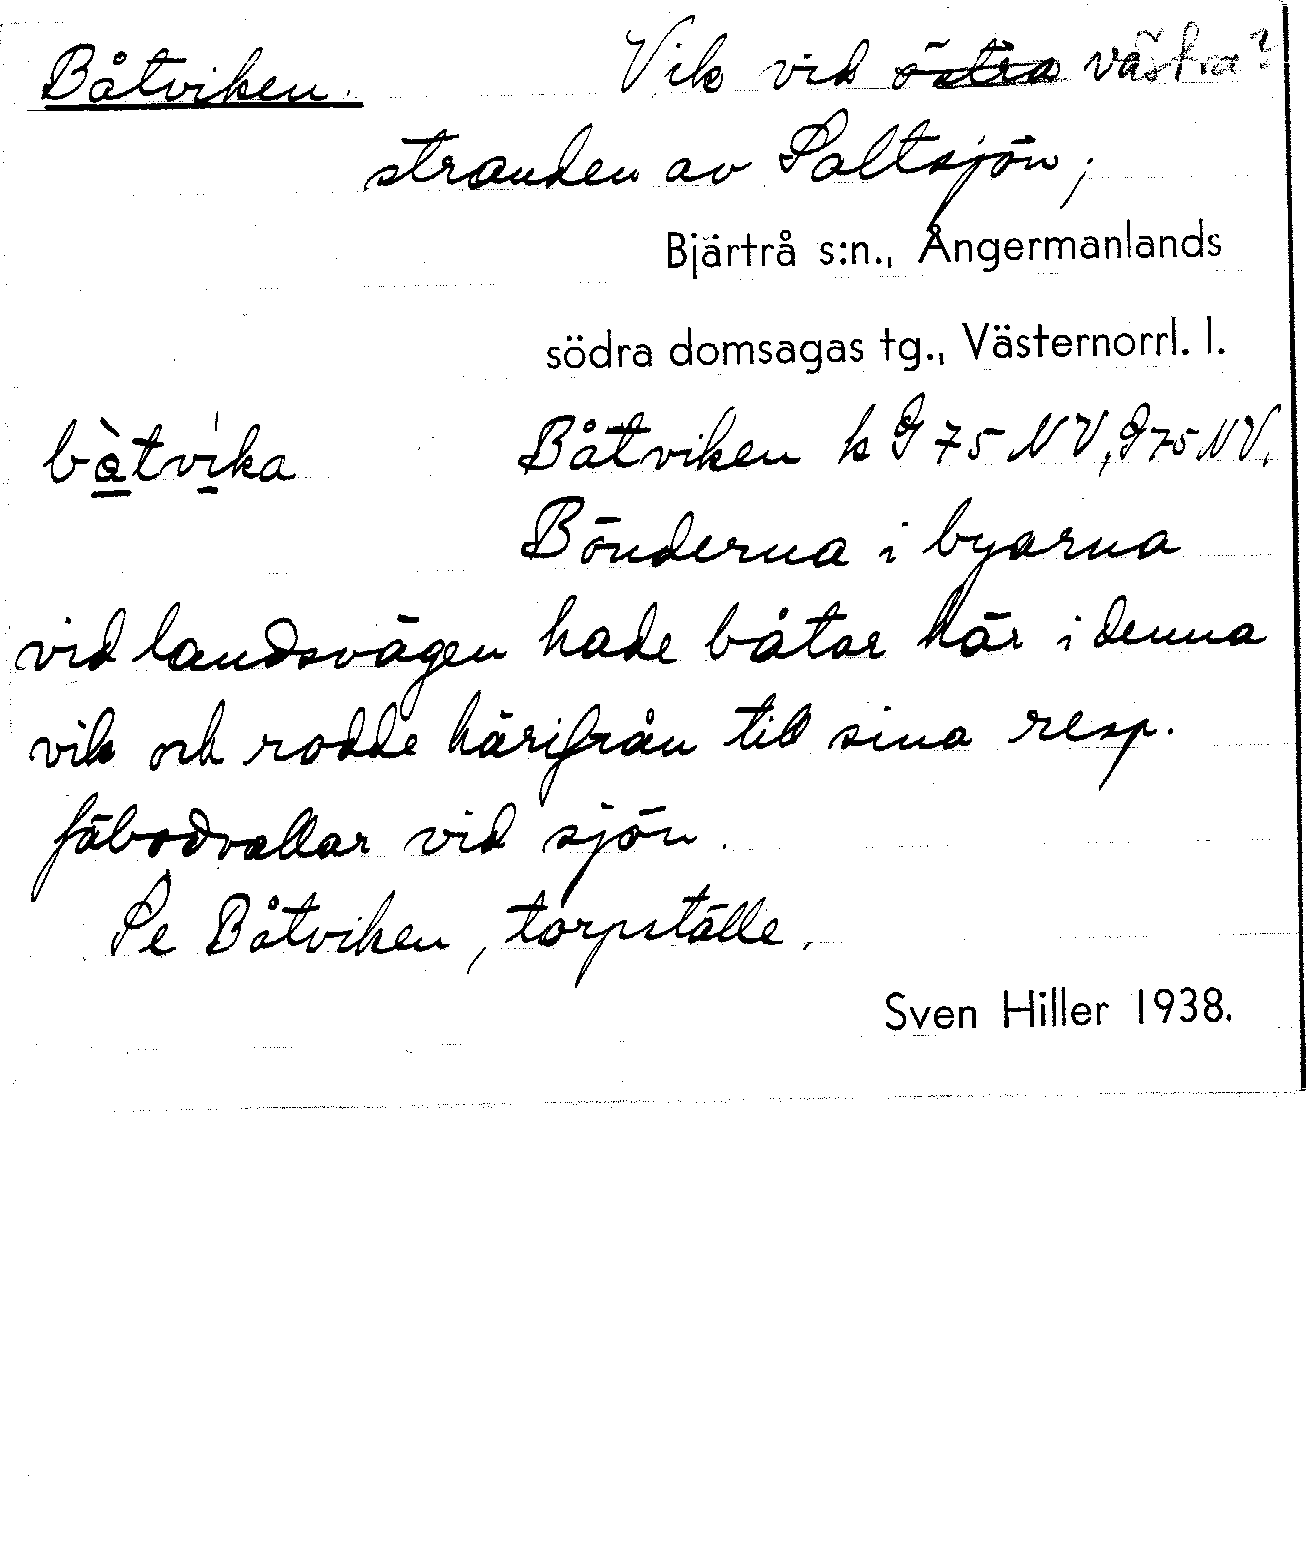 Båtviken. Vik vid östra västra?
stranden av Saltsjön;
Bjärtrå s:n., Ångermanlands
södra domsagas tg., Västernorrl. l.
bàtvika Båtviken k G 75 NV, G 75 NV.
Bönderna i byarna
vid landsvägen hade båtar här i denna
vik och rodde härifrån till sina resp.
fäbodvallar vid sjön.
Se Båtviken, torpställe.
Sven Hiller 1938.